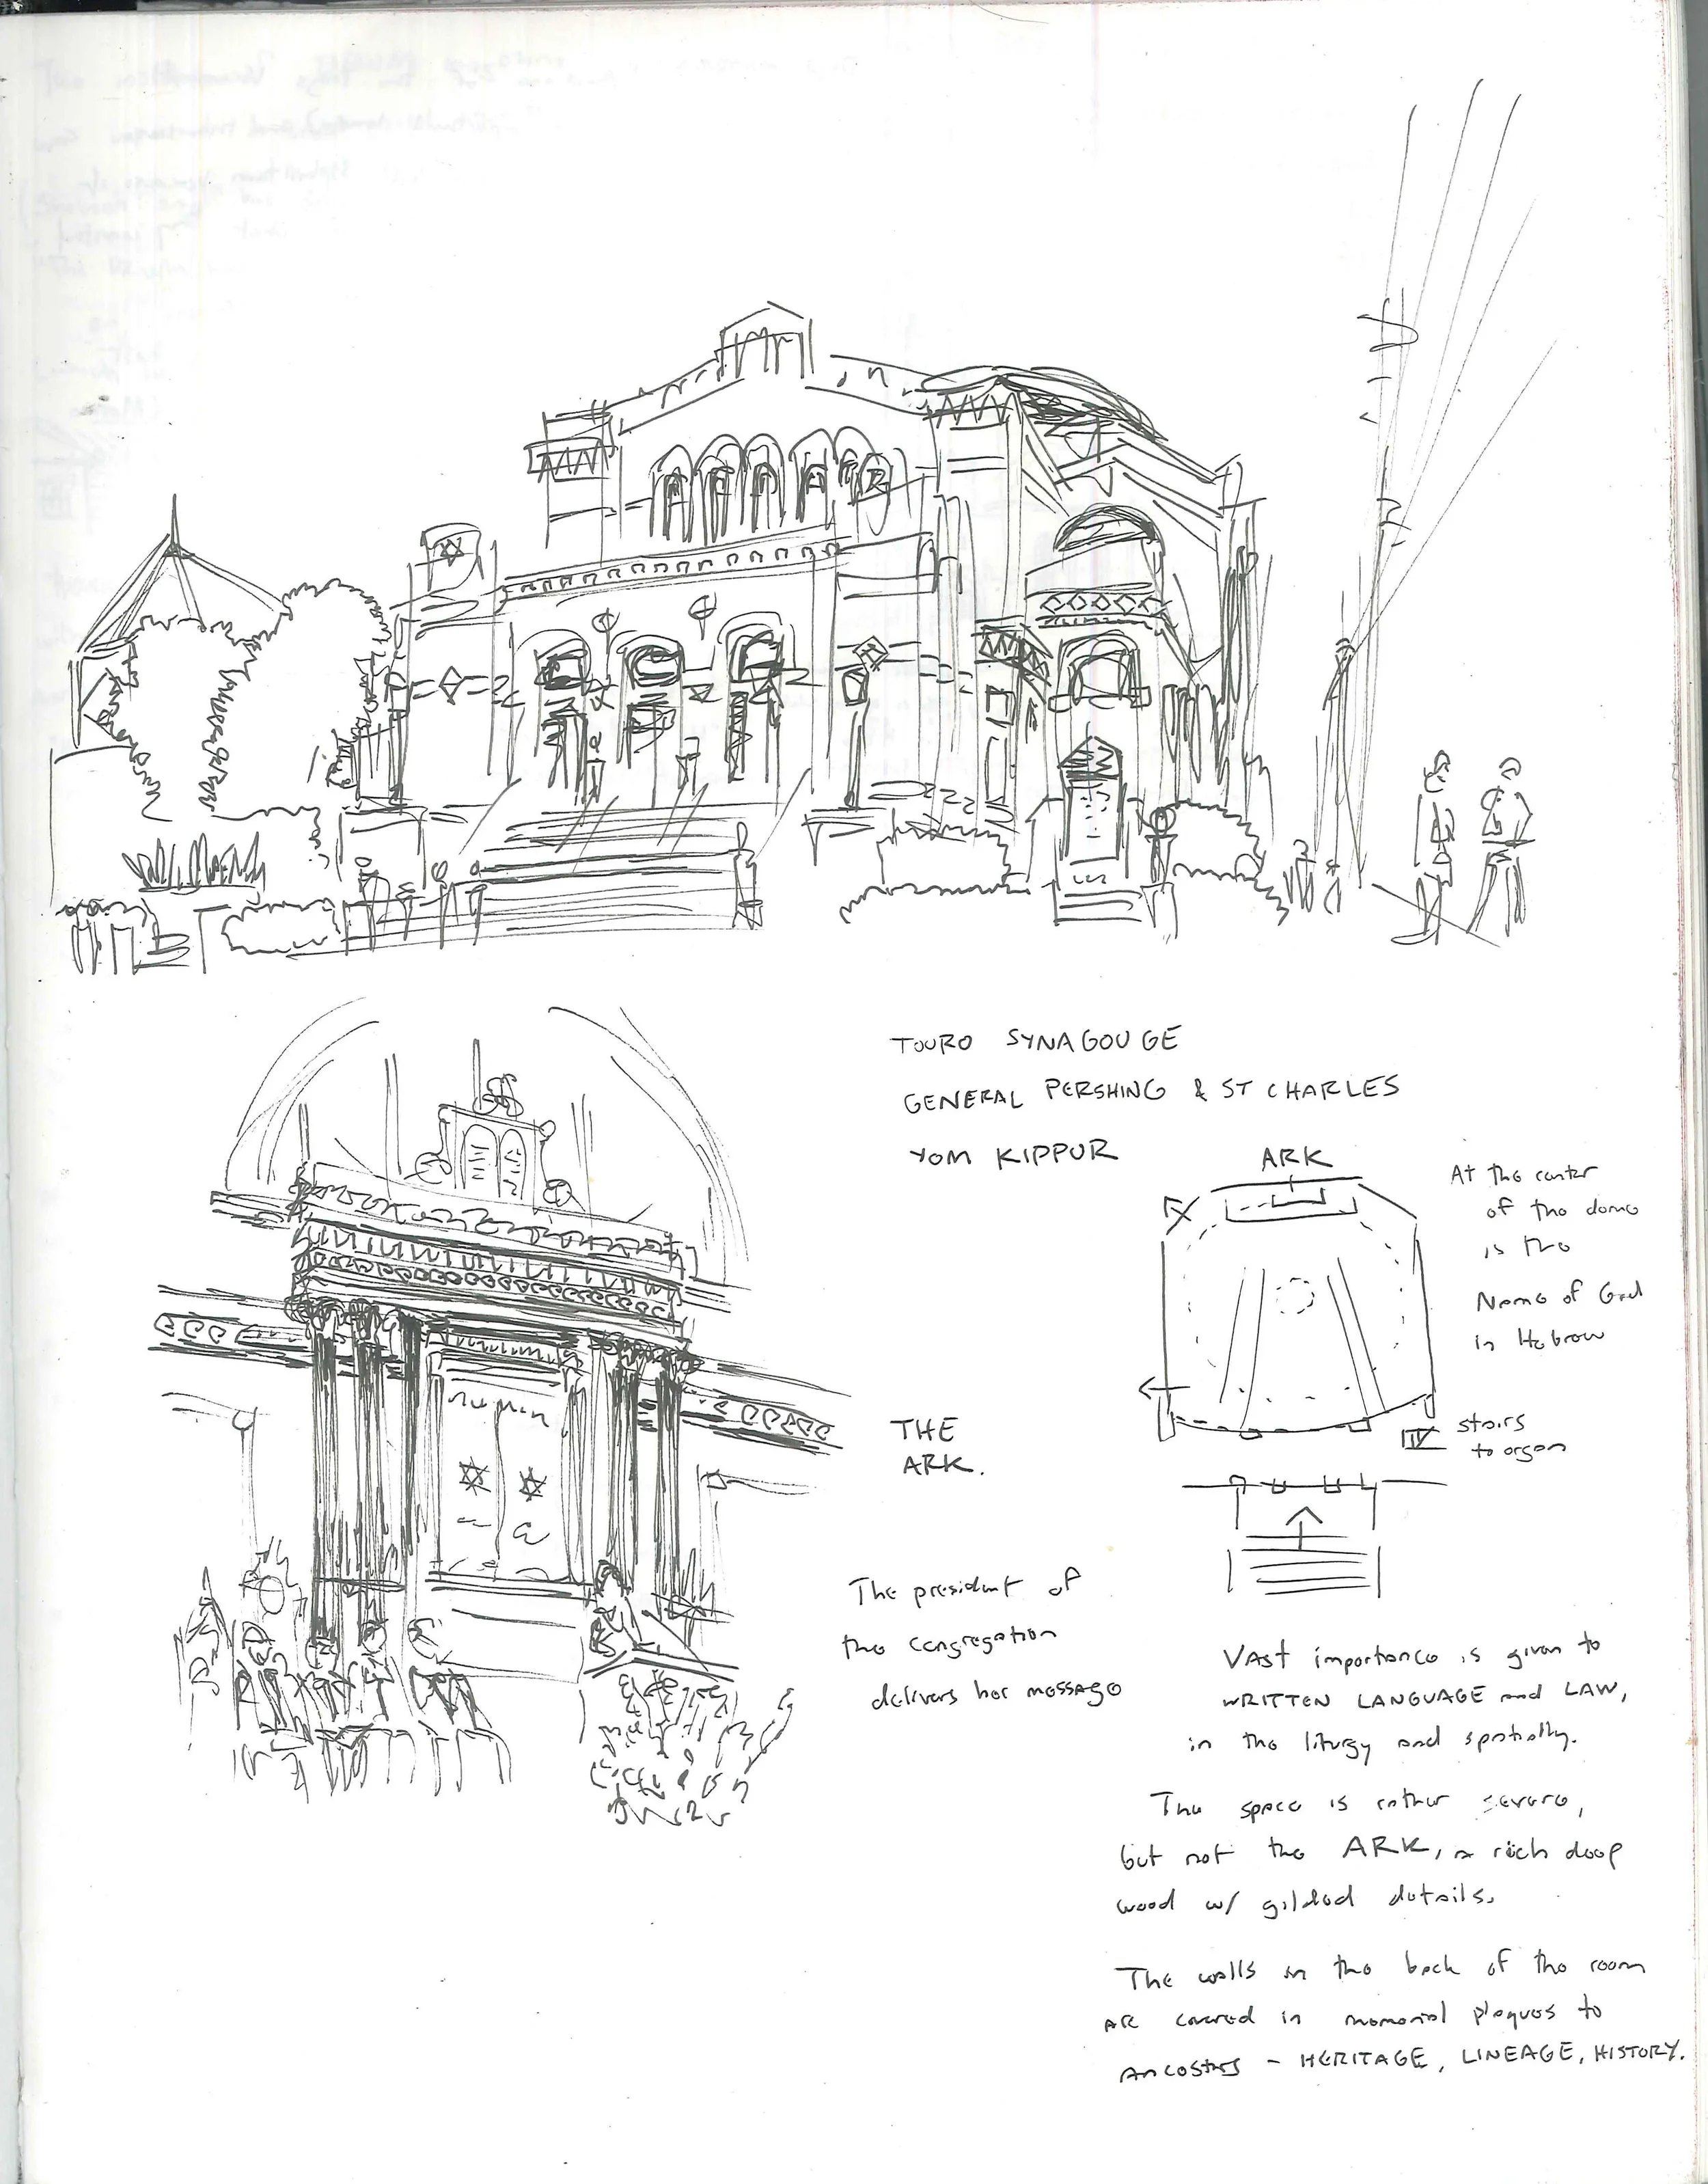 TOURO SYNAGOUGE
GENERAL PERSHING & ST CHARLES
YOM KIPPUR
ARK
At the center
of the dome
is the
Name of God
in Hebrew
stairs
to organ
THE
ARK.
The president of
the congregation
delivers her message
VAST importance is given to
WRITTEN LANGUAGE and LAW,
in the liturgy and spatially.
The space is rather severe,
but not the ARK, a rich deep
wood w/ gilded details.
The walls in the back of the room
ARE covered in memorial plaques to
ANCESTORS - HERITAGE, LINEAGE, HISTORY.